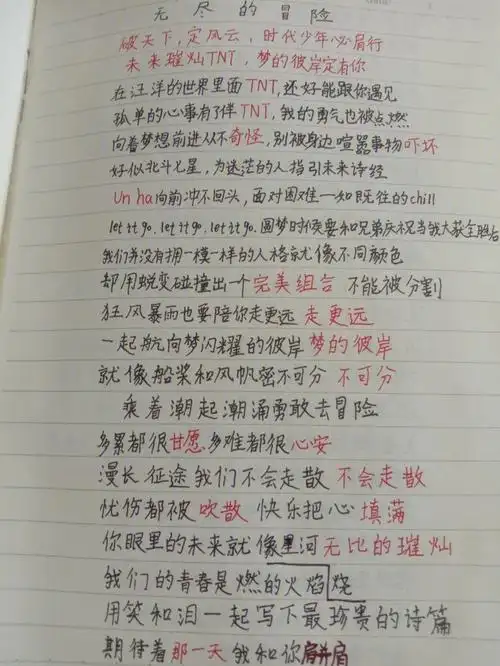 无尽的冒险
破天下,定风云,时代少年必肩行
未来璀灿TNT,梦的彼岸定有你
在汪洋的世界里面TNT,还好能跟你遇见
孤单的心事有了伴TNT,我的勇气也被点燃
向着梦想前进从不奇怪,别被身边喧嚣事物吓坏
好似北斗七星,为迷茫的人指引未来诗经
Un ha向前冲不回头,面对困难一如既往的chill
let it go.let it go.let it go.圆梦时候要和兄弟庆祝当我大获全胜后
我们并没有拥一模一样的人格就像不同颜色
却用蜕变碰撞出一个完美组合 不能被分割
狂风暴雨也要陪你走更远 走更远
一起航向梦闪耀的彼岸梦的彼岸
就像船桨和风帆密不可分 不可分
乘着潮起潮涌勇敢去冒险
多累都很甘愿多难都很心安
漫长征途我们不会走散不会走散
忧伤都被吹散 快乐把心填满
你眼里的未来就像星河无比的璀灿
我们的青春是燃的火焰烧
用笑和泪一起写下最珍贵的诗篇
期待着那一天我和你肩并肩